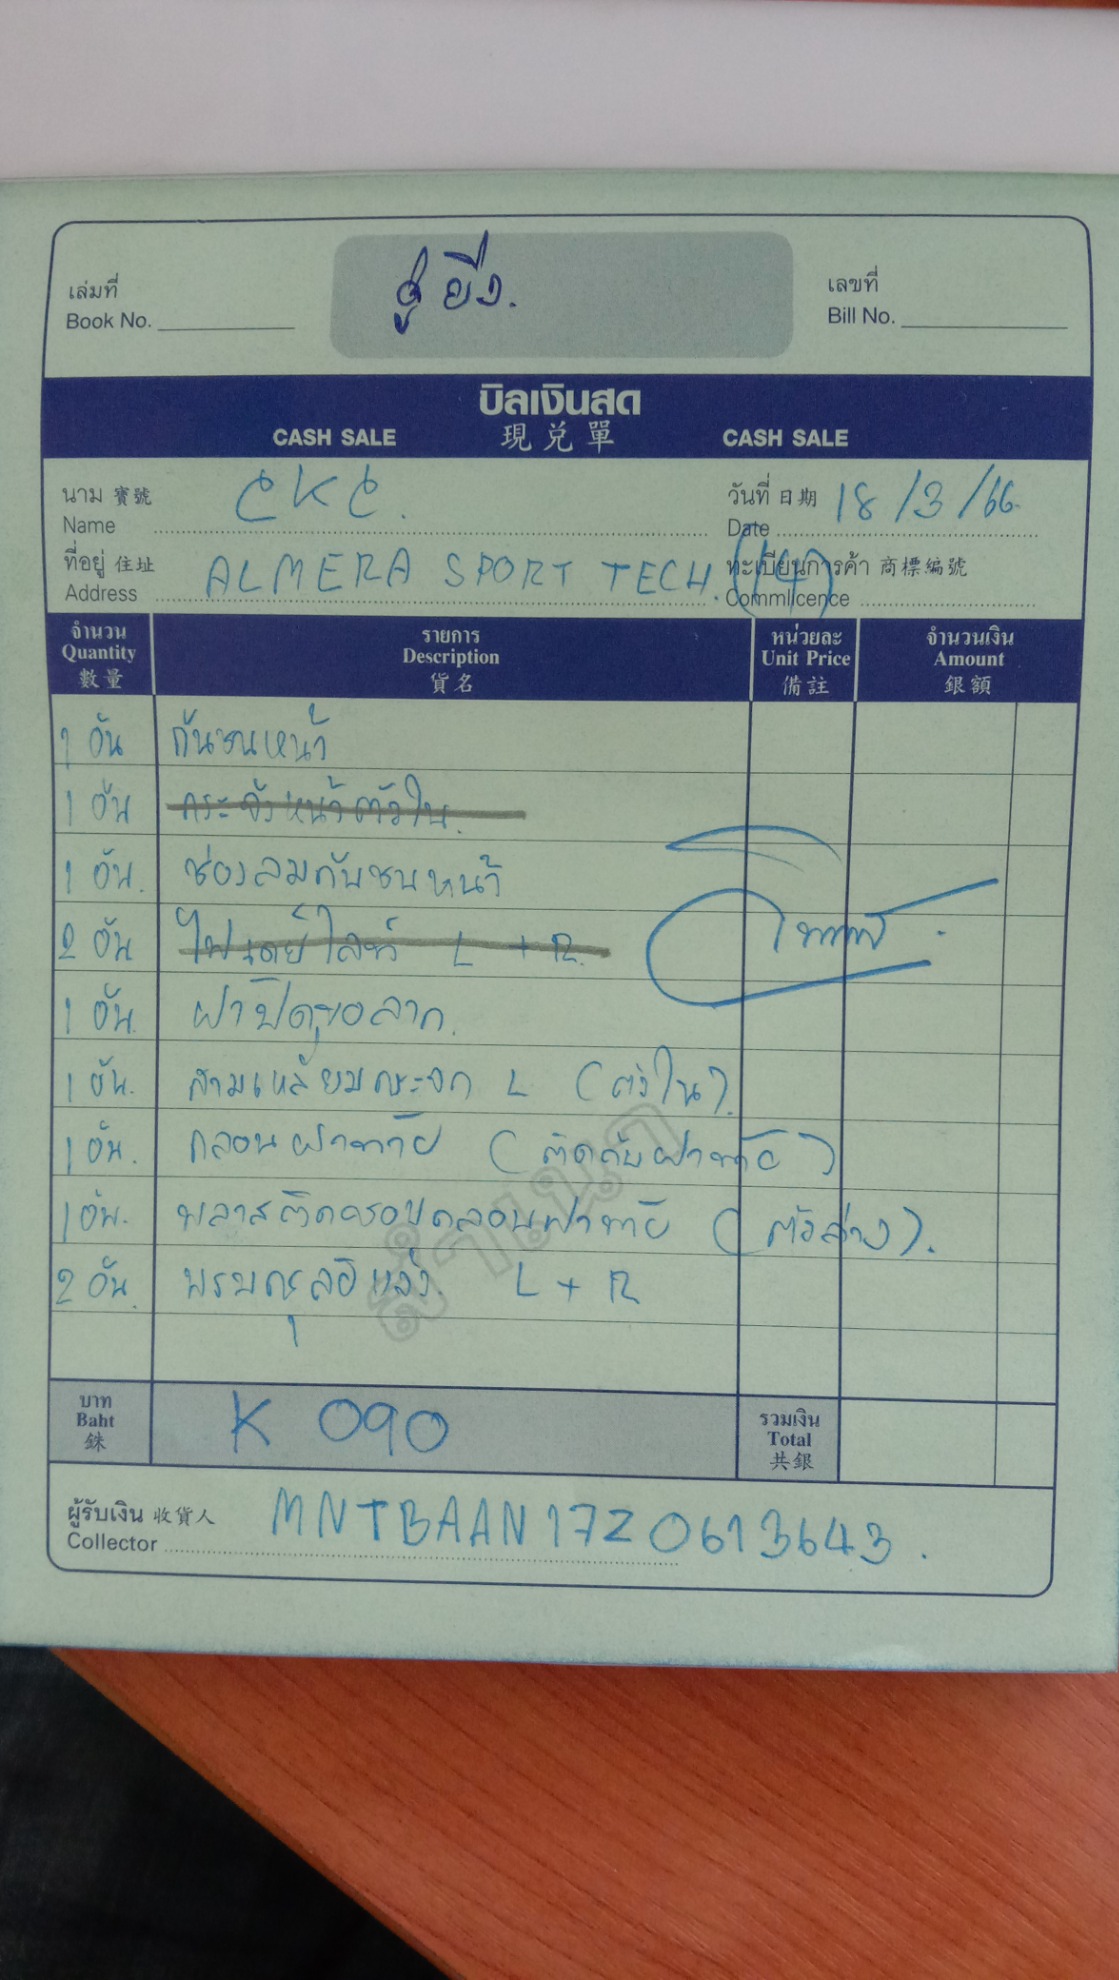 เล่มที่
Book No.
เลขที่
Bill No.
บิลเงินสด
CASH SALE 現兌單 CASH SALE
นาม 寶號
Name CKC.
วันที่ 日期
Date 18/3/66
ที่อยู่ 住址
Address ALMERA SPORT TECH. (14)
ทะเบียนการค้า 商標編號
Commlicence
จำนวน รายการ หน่วยละ จำนวนเงิน
Quantity Description Unit Price Amount
數量 貨名 備註 銀額
1 อัน กันชนหน้า
1 อัน กระจังหน้าตัวใน
1 อัน. ช่องลมกันชนหน้า
2 อัน ไฟเดย์ไลท์ L + R.
1 อัน. ฝาปิดหูลาก.
1 อัน. สามเหลี่ยมกระจก L (ตัวใน).
1 อัน. กลอนฝาท้าย (ติดกับฝาท้าย)
1 อัน. พลาสติดครอบกลอนฝาท้าย (ตัวล่าง).
2 อัน. L + R
สำเนา
บาท
Baht
銖
K 090
รวมเงิน
Total
共銀
ผู้รับเงิน 收貨人
Collector MNTBAAN17Z0613643.